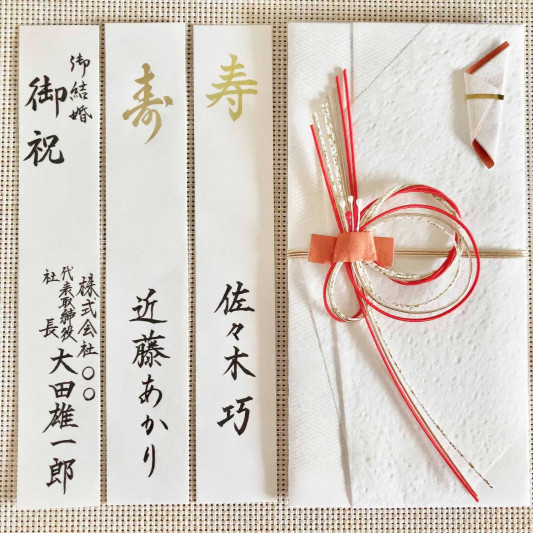 寿
佐々木巧
寿
近藤あかり
御結婚
御祝
株式会社〇〇
代表取締役
社長
大田雄一郎